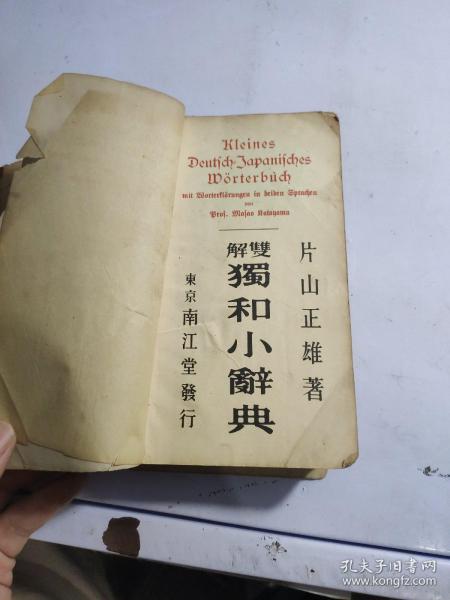 Kleines
Deutsch-Japanisches
Wörterbuch
mit Worterklärungen in beiden Sprachen
von
Prof. Masao Katayama
片山正雄著
解雙
獨和小辭典
東京南江堂發行
孔夫子旧书网
www.kongfz.com